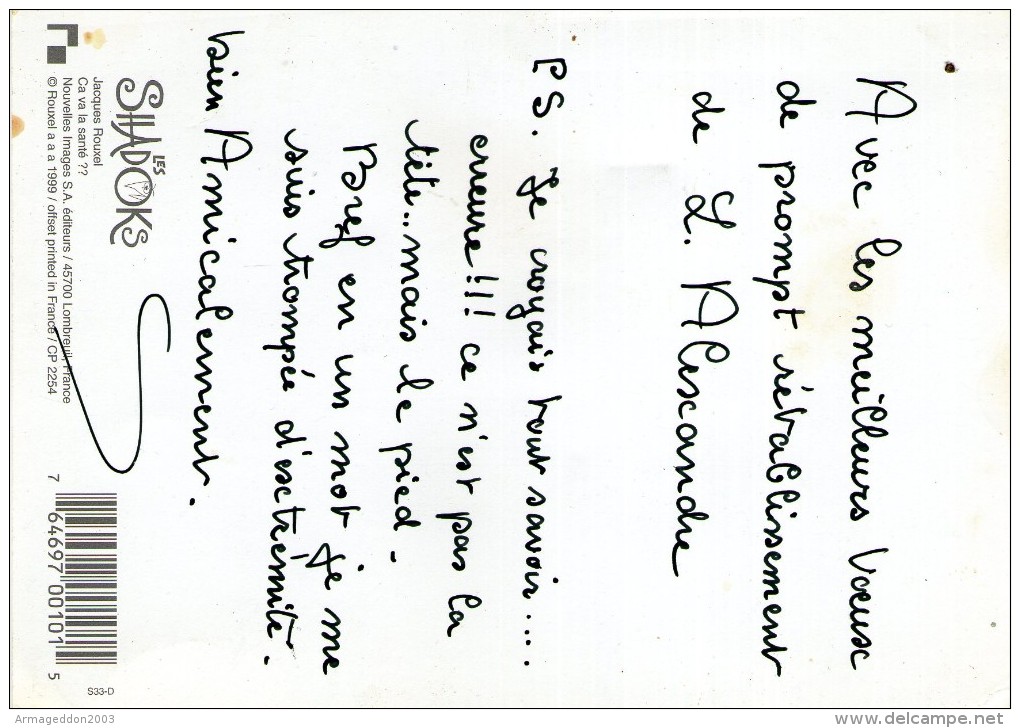 Avec les meilleurs Vœux
de prompt rétablissement
de L. Alescandre
PS. Je croyais tout savoir....
erreure!!! ce n'est pas la
tête.. mais le pied.
Bref en un mot je me
suis trompée d'extrémité.
bien Amicalement.
LES
SHADOKS
Jacques Rouxel
Ca va la santé ??
Nouvelles Images S.A. éditeurs / 45700 Lombreuil, France
© Rouxel a a a 1999 / offset printed in France / CP 2254
7 64697 00101 5
S33-D
Armageddon2003
delcampe.net